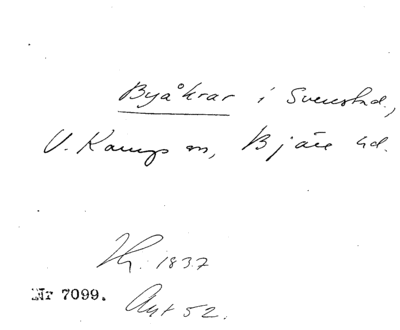 Byåkrar i Svenstad,
V. Karups sn, Bjäre hd.
Hr. 1837
Nr 7099.
Avs 52.